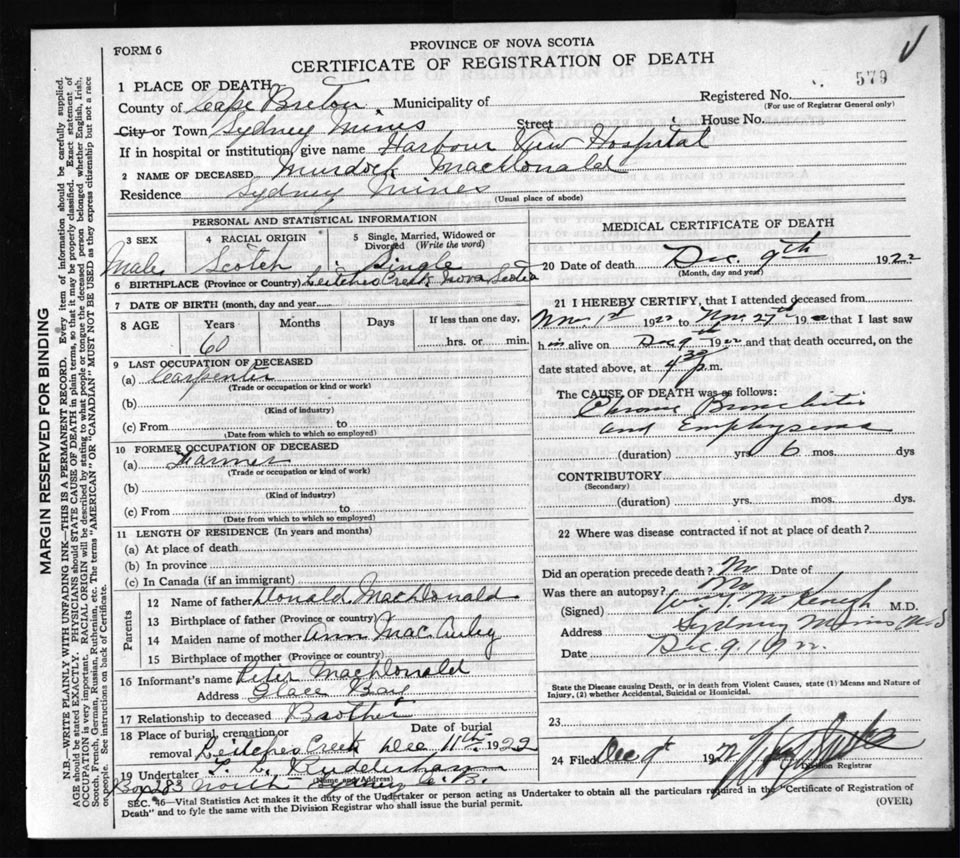 FORM 6
PROVINCE OF NOVA SCOTIA
CERTIFICATE OF REGISTRATION OF DEATH
579
1 PLACE OF DEATH
Registered No.
(For use of Registrar General only)
County of Cape Breton Municipality of
City or Town Sydney Mines Street House No.
If in hospital or institution, give name Harbour View Hospital
2 NAME OF DECEASED Murdoch MacDonald
Residence Sydney Mines
(Usual place of abode)
PERSONAL AND STATISTICAL INFORMATION
3 SEX 4 RACIAL ORIGIN 5 Single, Married, Widowed or Divorced (Write the word)
Male Scotch Single
6 BIRTHPLACE (Province or Country) Leitches Creek Nova Scotia
7 DATE OF BIRTH (month, day and year)
8 AGE Years Months Days If less than one day,
60 hrs. or min.
9 LAST OCCUPATION OF DECEASED
(a) Carpenter
(Trade or occupation or kind or work)
(b)
(Kind of industry)
(c) From to
(Date from which to which so employed)
10 FORMER OCCUPATION OF DECEASED
(a) Farmer
(Trade or occupation or kind of work)
(b)
(Kind of industry)
(c) From to
(Date from which to which so employed)
11 LENGTH OF RESIDENCE (In years and months)
(a) At place of death
(b) In province
(c) In Canada (if an immigrant)
Parents
12 Name of father Donald MacDonald
13 Birthplace of father (Province or country)
14 Maiden name of mother Ann MacAuley
15 Birthplace of mother (Province or country)
16 Informant's name Peter MacDonald
Address Glace Bay
17 Relationship to deceased Brother
18 Place of burial, cremation or Date of burial
removal Leitches Creek Dec 11th 1922
19 Undertaker
(Name and Address)
Box 283 North Sydney C. B.
MEDICAL CERTIFICATE OF DEATH
20 Date of death Dec. 9th 1922
(Month, day and year)
21 I HEREBY CERTIFY, that I attended deceased from
Nov. 1st 1922 to Nov. 27th 19 that I last saw
him alive on Dec 9th 1922 and that death occurred, on the
date stated above, at p.m.
The CAUSE OF DEATH was as follows:
Chronic Bronchitis
and Emphysema
(duration) yrs 6 mos. dys
CONTRIBUTORY
(Secondary)
(duration) yrs. mos. dys.
22 Where was disease contracted if not at place of death?
Did an operation precede death? No Date of
Was there an autopsy? No
(Signed) McKeough M.D.
Address Sydney Mines N.S
Date Dec. 9. 1922.
State the Disease causing Death, or in death from Violent Causes, state (1) Means and Nature of
Injury, (2) whether Accidental, Suicidal or Homicidal.
23
24 Filed Dec 9th 192
Division Registrar
SEC. 46—Vital Statistics Act makes it the duty of the Undertaker or person acting as Undertaker to obtain all the particulars required in the "Certificate of Registration of
Death" and to fyle the same with the Division Registrar who shall issue the burial permit.
(OVER)
MARGIN RESERVED FOR BINDING
N.B.—WRITE PLAINLY WITH UNFADING INK—THIS IS A PERMANENT RECORD. Every item of information should be carefully supplied.
AGE should be stated EXACTLY. PHYSICIANS should STATE CAUSE OF DEATH in plain terms, so that it may be properly classified. Exact statement of
OCCUPATION is very important. RACIAL ORIGIN will be described by stating to what people or tongue the deceased person belonged whether English, Irish,
Scotch, French, German, Russian, Ruthenian, etc. The terms "AMERICAN" OR "CANADIAN" MUST NOT BE USED as they express citizenship but not a race
or people. See instructions on back of Certificate.